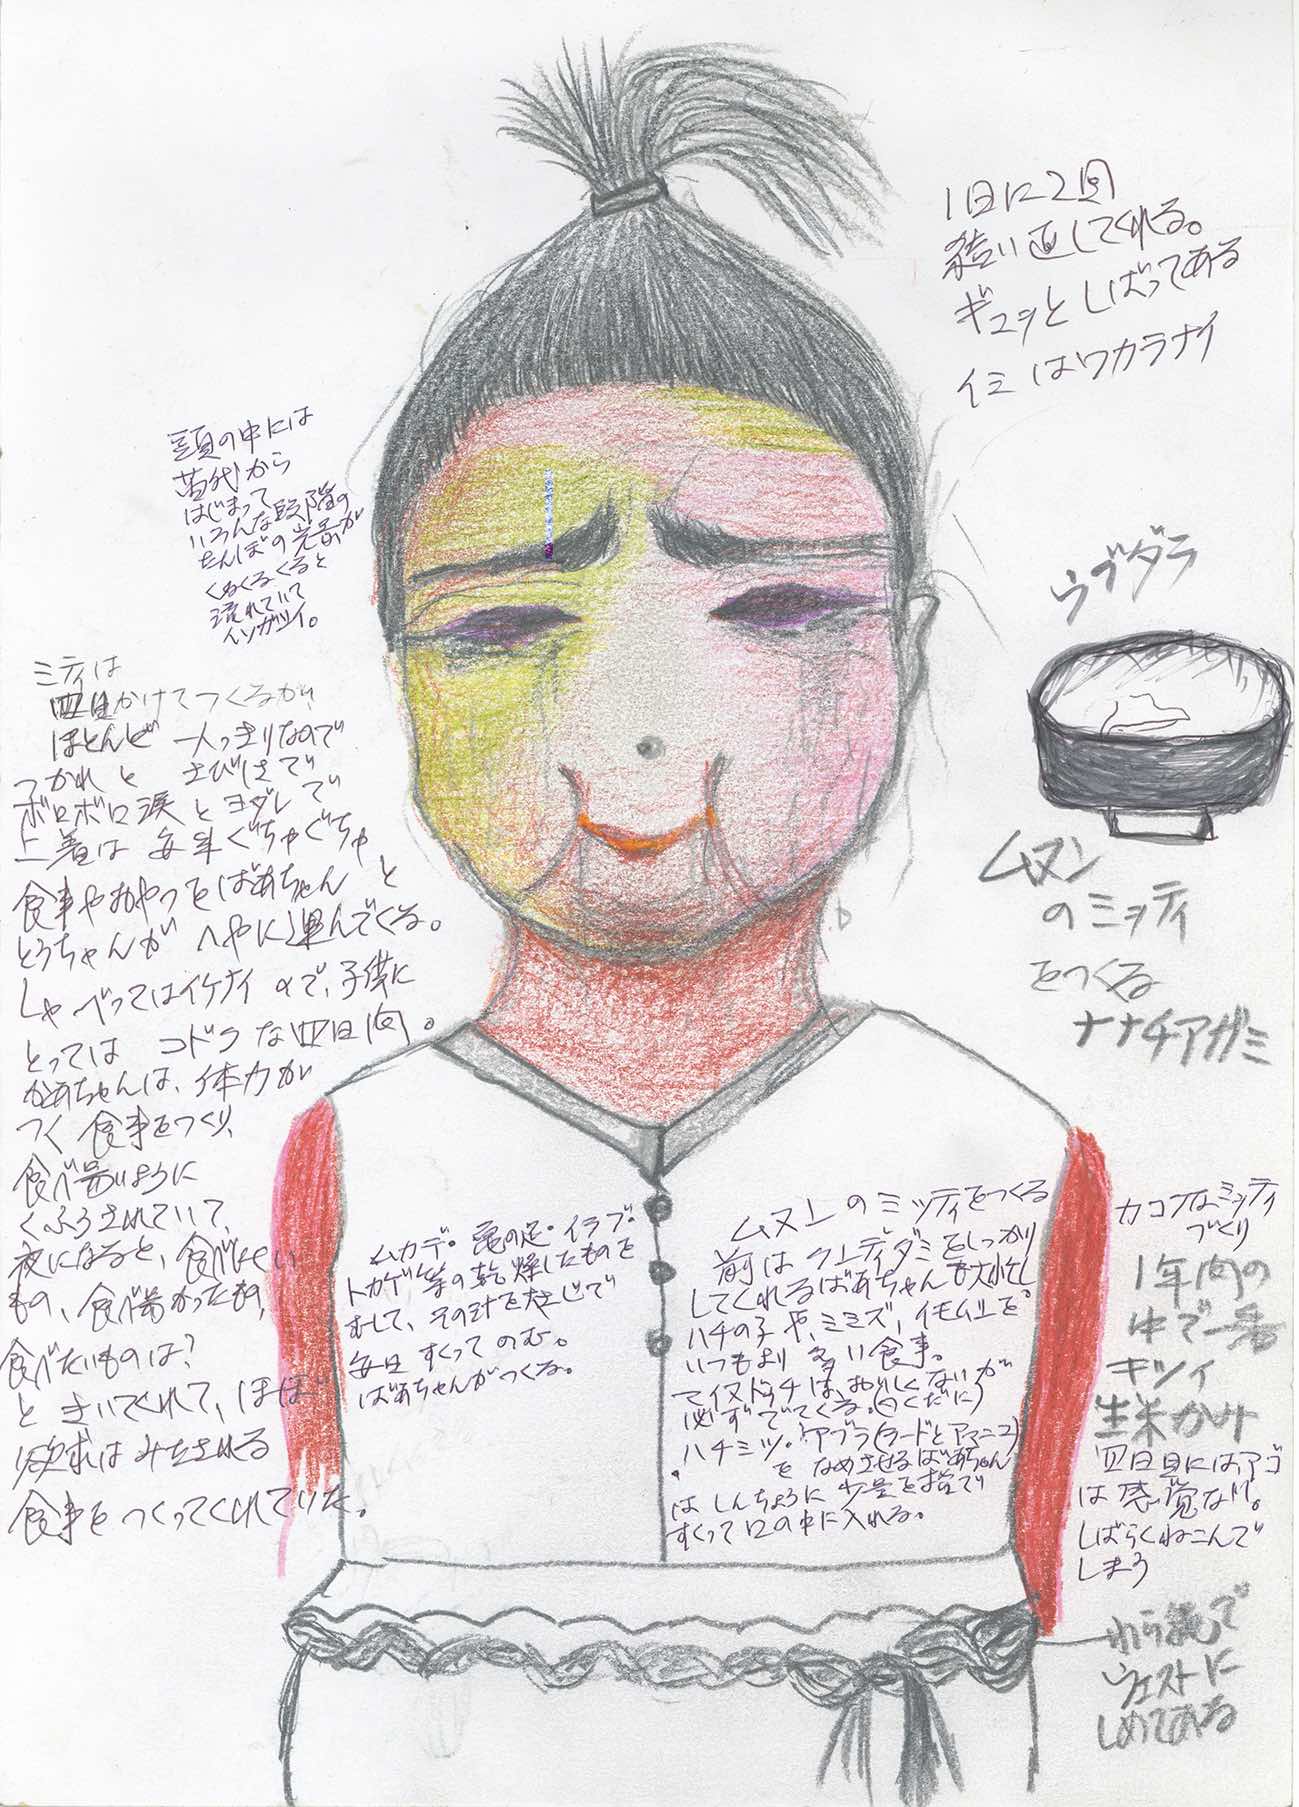 1日に2回
結い直してくれる。
ギュッとしばってある
イミはワカラナイ
頭の中には
苗代から
はじまって
いろんな段階の
たんぼの光景が
くるくるくると
流れていて
イソガシイ。
ミティは
四日かけてつくるが、
ほとんど一人っきりなので
つかれとさびしさで
ボロボロ涙とヨダレで
上着は毎年ぐちゃぐちゃ
食事やおやつをばあちゃんと
とうちゃんがへやに運んでくる。
しゃべってはイケナイので、子供に
とってはコドクな四日間。
かあちゃんは、体力が
つく食事をつくり、
食べ易いように
くふうされていて、
夜になると、食べにくい
もの、食べ易かったもの、
食べたいものは?
ときいてくれて、ほぼ
欲求はみたされる
食事をつくってくれていた。
ウブダラ
ムヌン
のミョティ
をつくる
ナナチアガミ
ムカデ。亀の足・イラブ・
トカゲ等の乾燥したものを
むして、その汁を
毎日すくってのむ。
ばあちゃんがつくる。
ムヌンのミッティをつくる
前はクューディダミをしっかり
してくれるばあちゃんも大忙し
ハチの子や、ミミズ、イモムシを。
いつもより多い食事。
マイヌドゥチは、おいしくないが
必ずでてくる。
ハチミツ。アブラ(ラードとアマニユ)
をなめさせるばあちゃん
はしんちょうに少量を指で
すくって口の中に入れる。
カコクなミッティ
づくり
1年間の
中で一番
キツイ
生米かみ
四日目にはアゴ
は感覚なし。
しばらくねこんで
しまう
わら縄で
ウェストに
しめてある